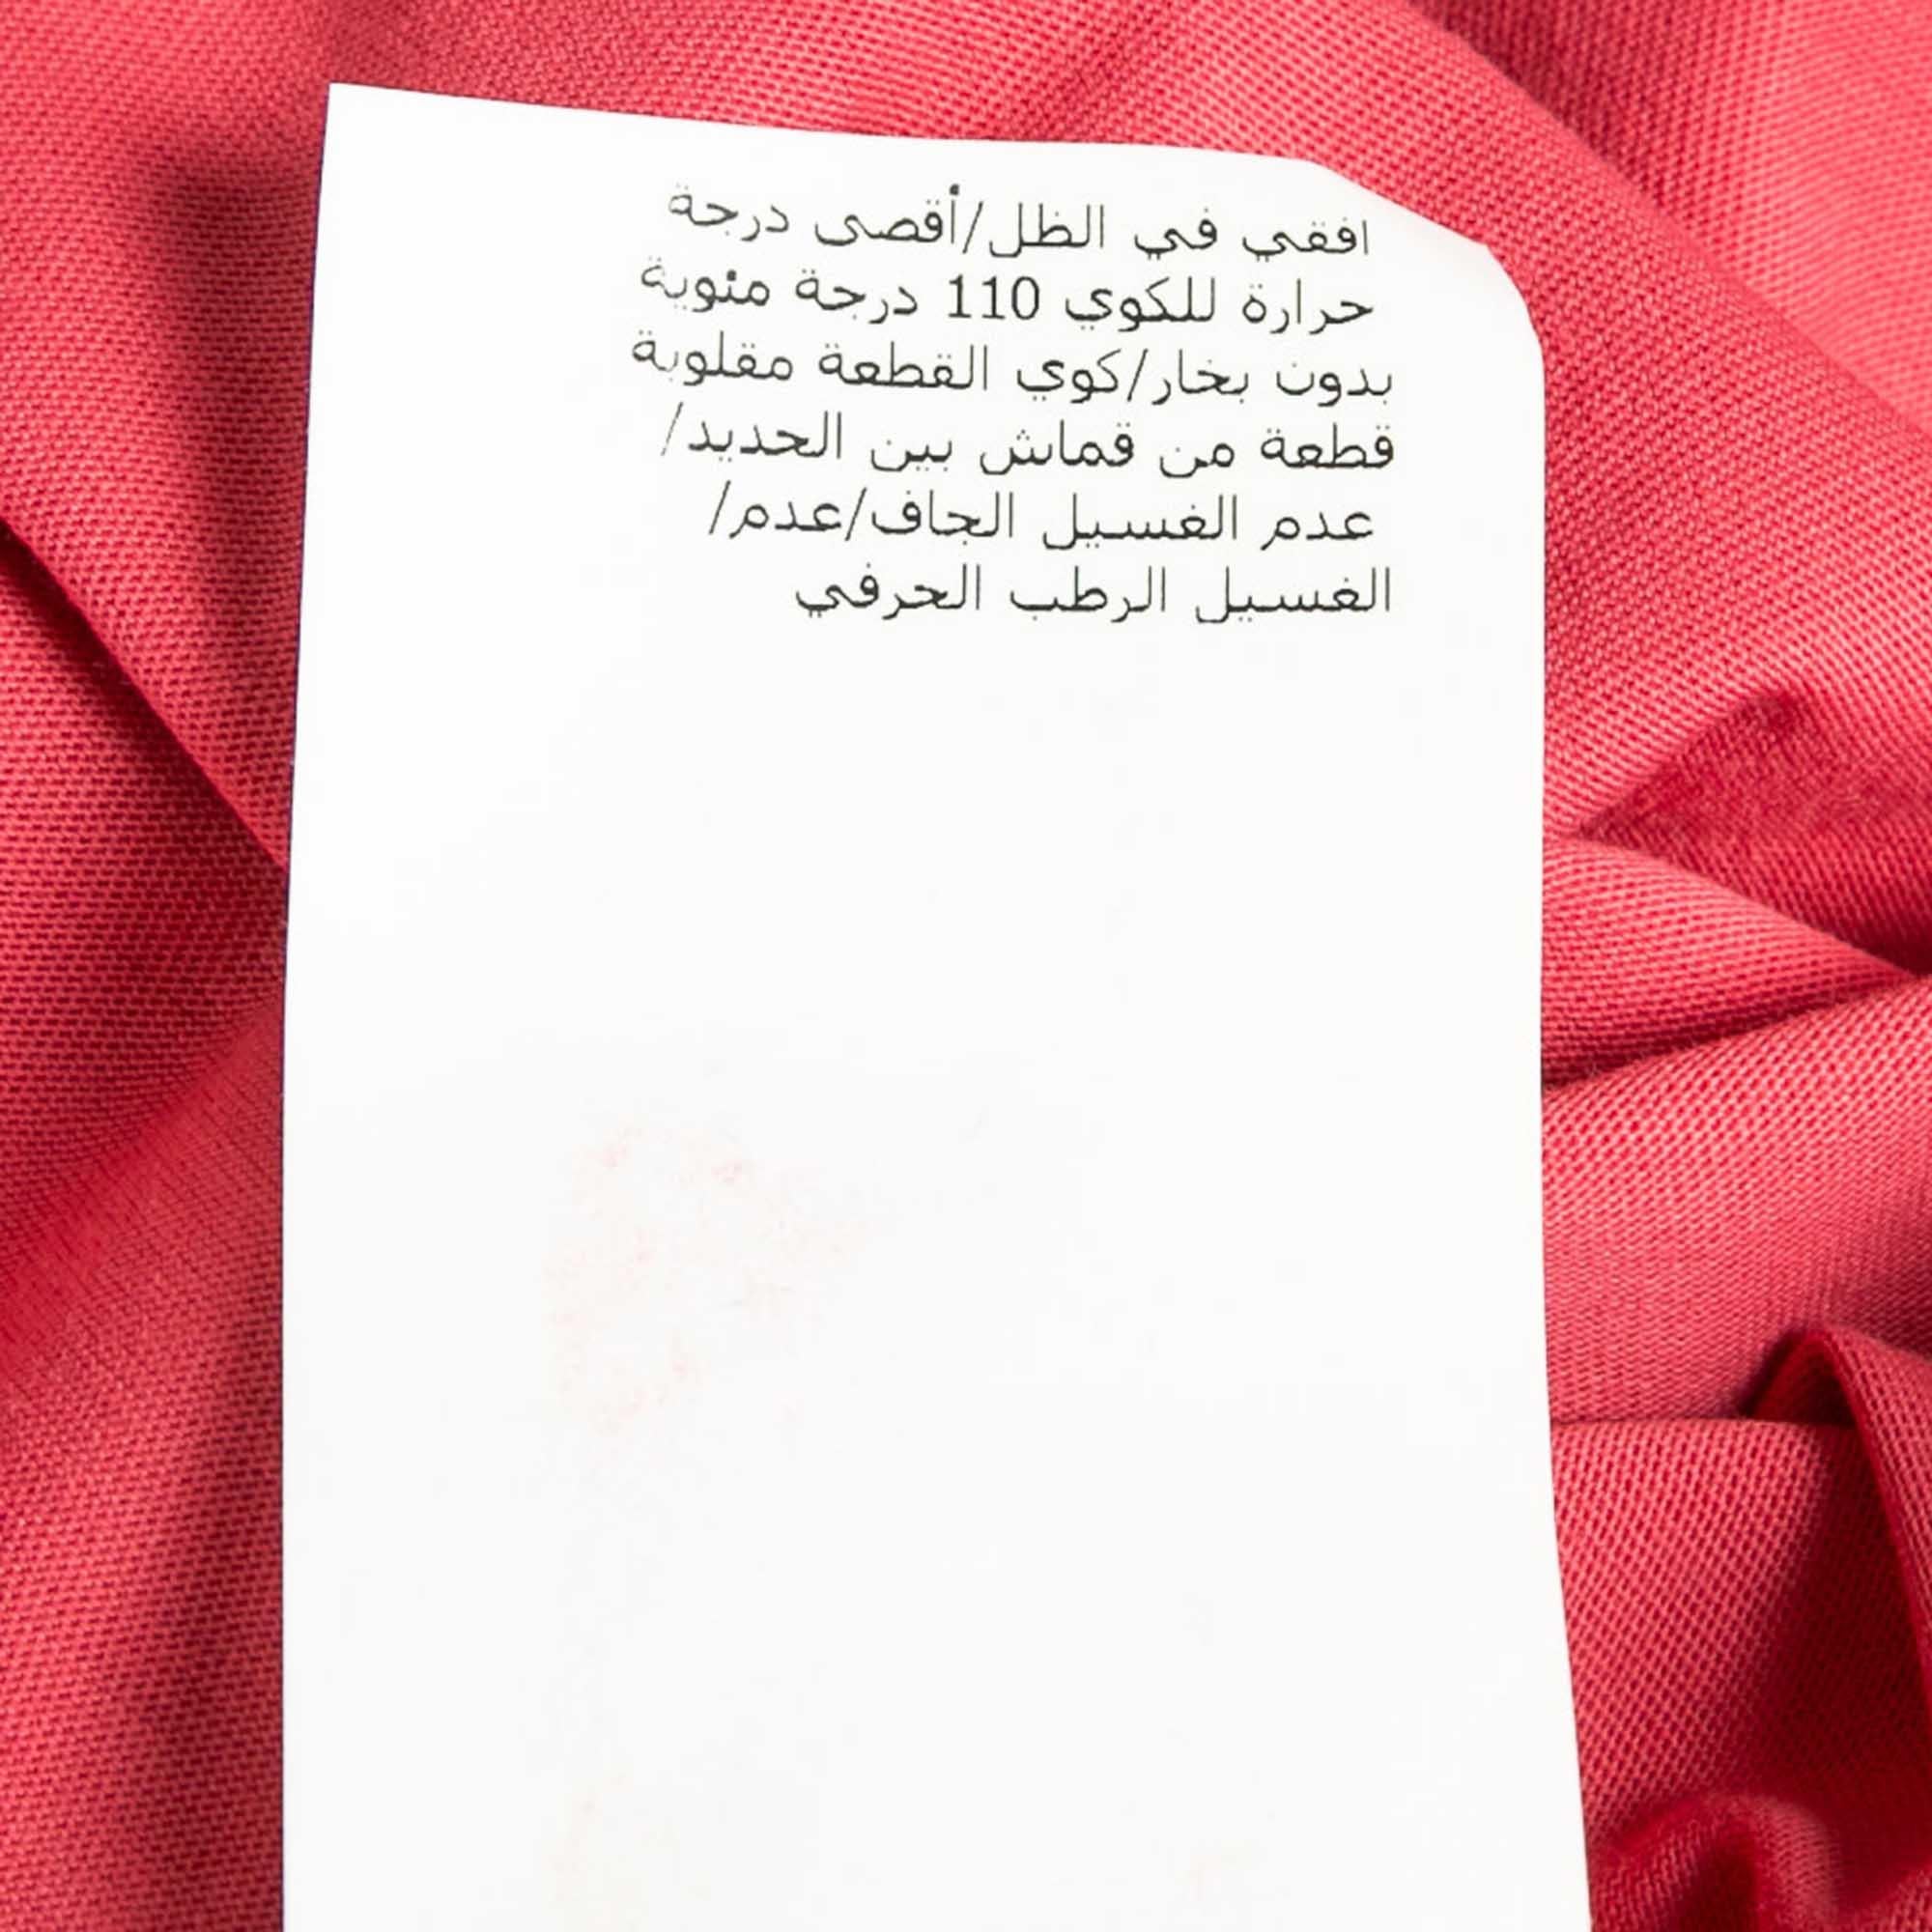 افقي في الظل/أقصى درجة
حرارة للكوي 110 درجة مئوية
بدون بخار/كوي القطعة مقلوبة
قطعة من قماش بين الحديد/
عدم الغسيل الجاف/عدم/
الغسيل الرطب الحرفي